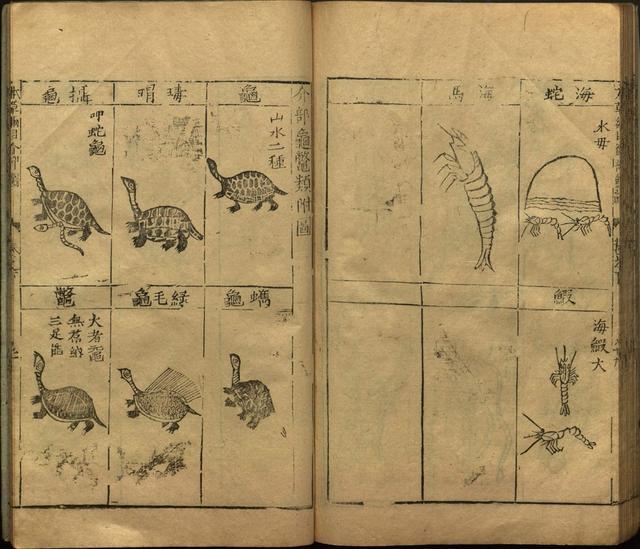 海蛇
水母
海馬
鰕
海鰕大
介部龜鼈類附圖
龜
山水二種
瑇瑁
攝龜
呷蛇龜
蠵龜
綠毛龜
鼈
大者黿
無裙納
三足能